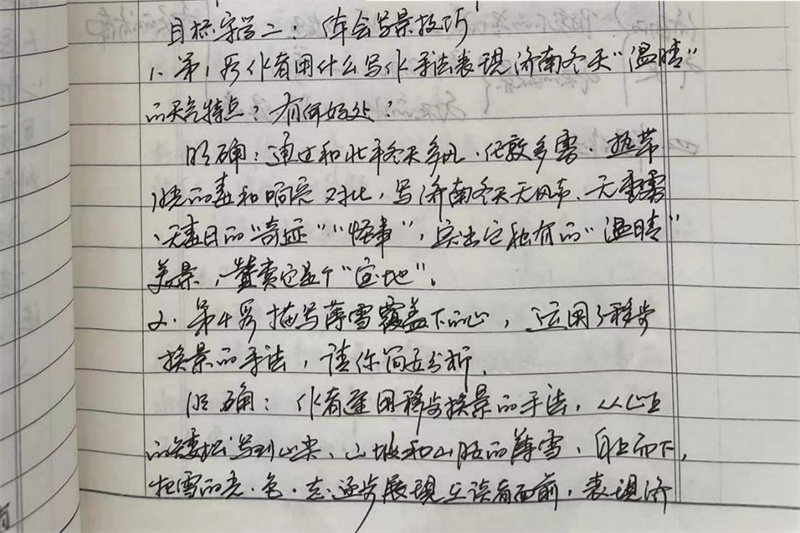 目标导学二：体会写景技巧
1.第1段作者用什么写作手法表现济南冬天"温晴"
的天气特点？有何好处？
明确：通过和北平冬天多风、伦敦多雾、热带
的毒和响亮对比，写济南冬天无风声、无重雾
、无毒日的"奇迹""怪事"，突出它独有的"温晴"
美景，赞它是个"宝地"。
2.第4段描写薄雪覆盖下的山，运用了移步
换景的手法，请你简要分析。
明确：作者运用移步换景的手法，从山上
的矮松写到山尖、山坡和山腰的薄雪，自上而下，
把雪的光、色、态逐步展现在读者面前，表现济